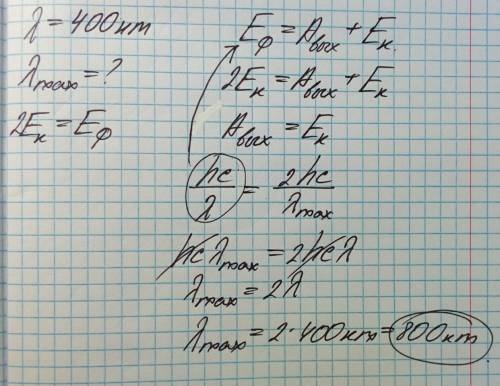 λ = 400 нм
λmax = ?
2Eк = Eф
Eф = Aвых + Eк.
2Eк = Aвых + Eк
Aвых = Eк
hc/λ = 2hc/λmax
hcλmax = 2hcλ
λmax = 2λ
λmax = 2·400нм = 800нм